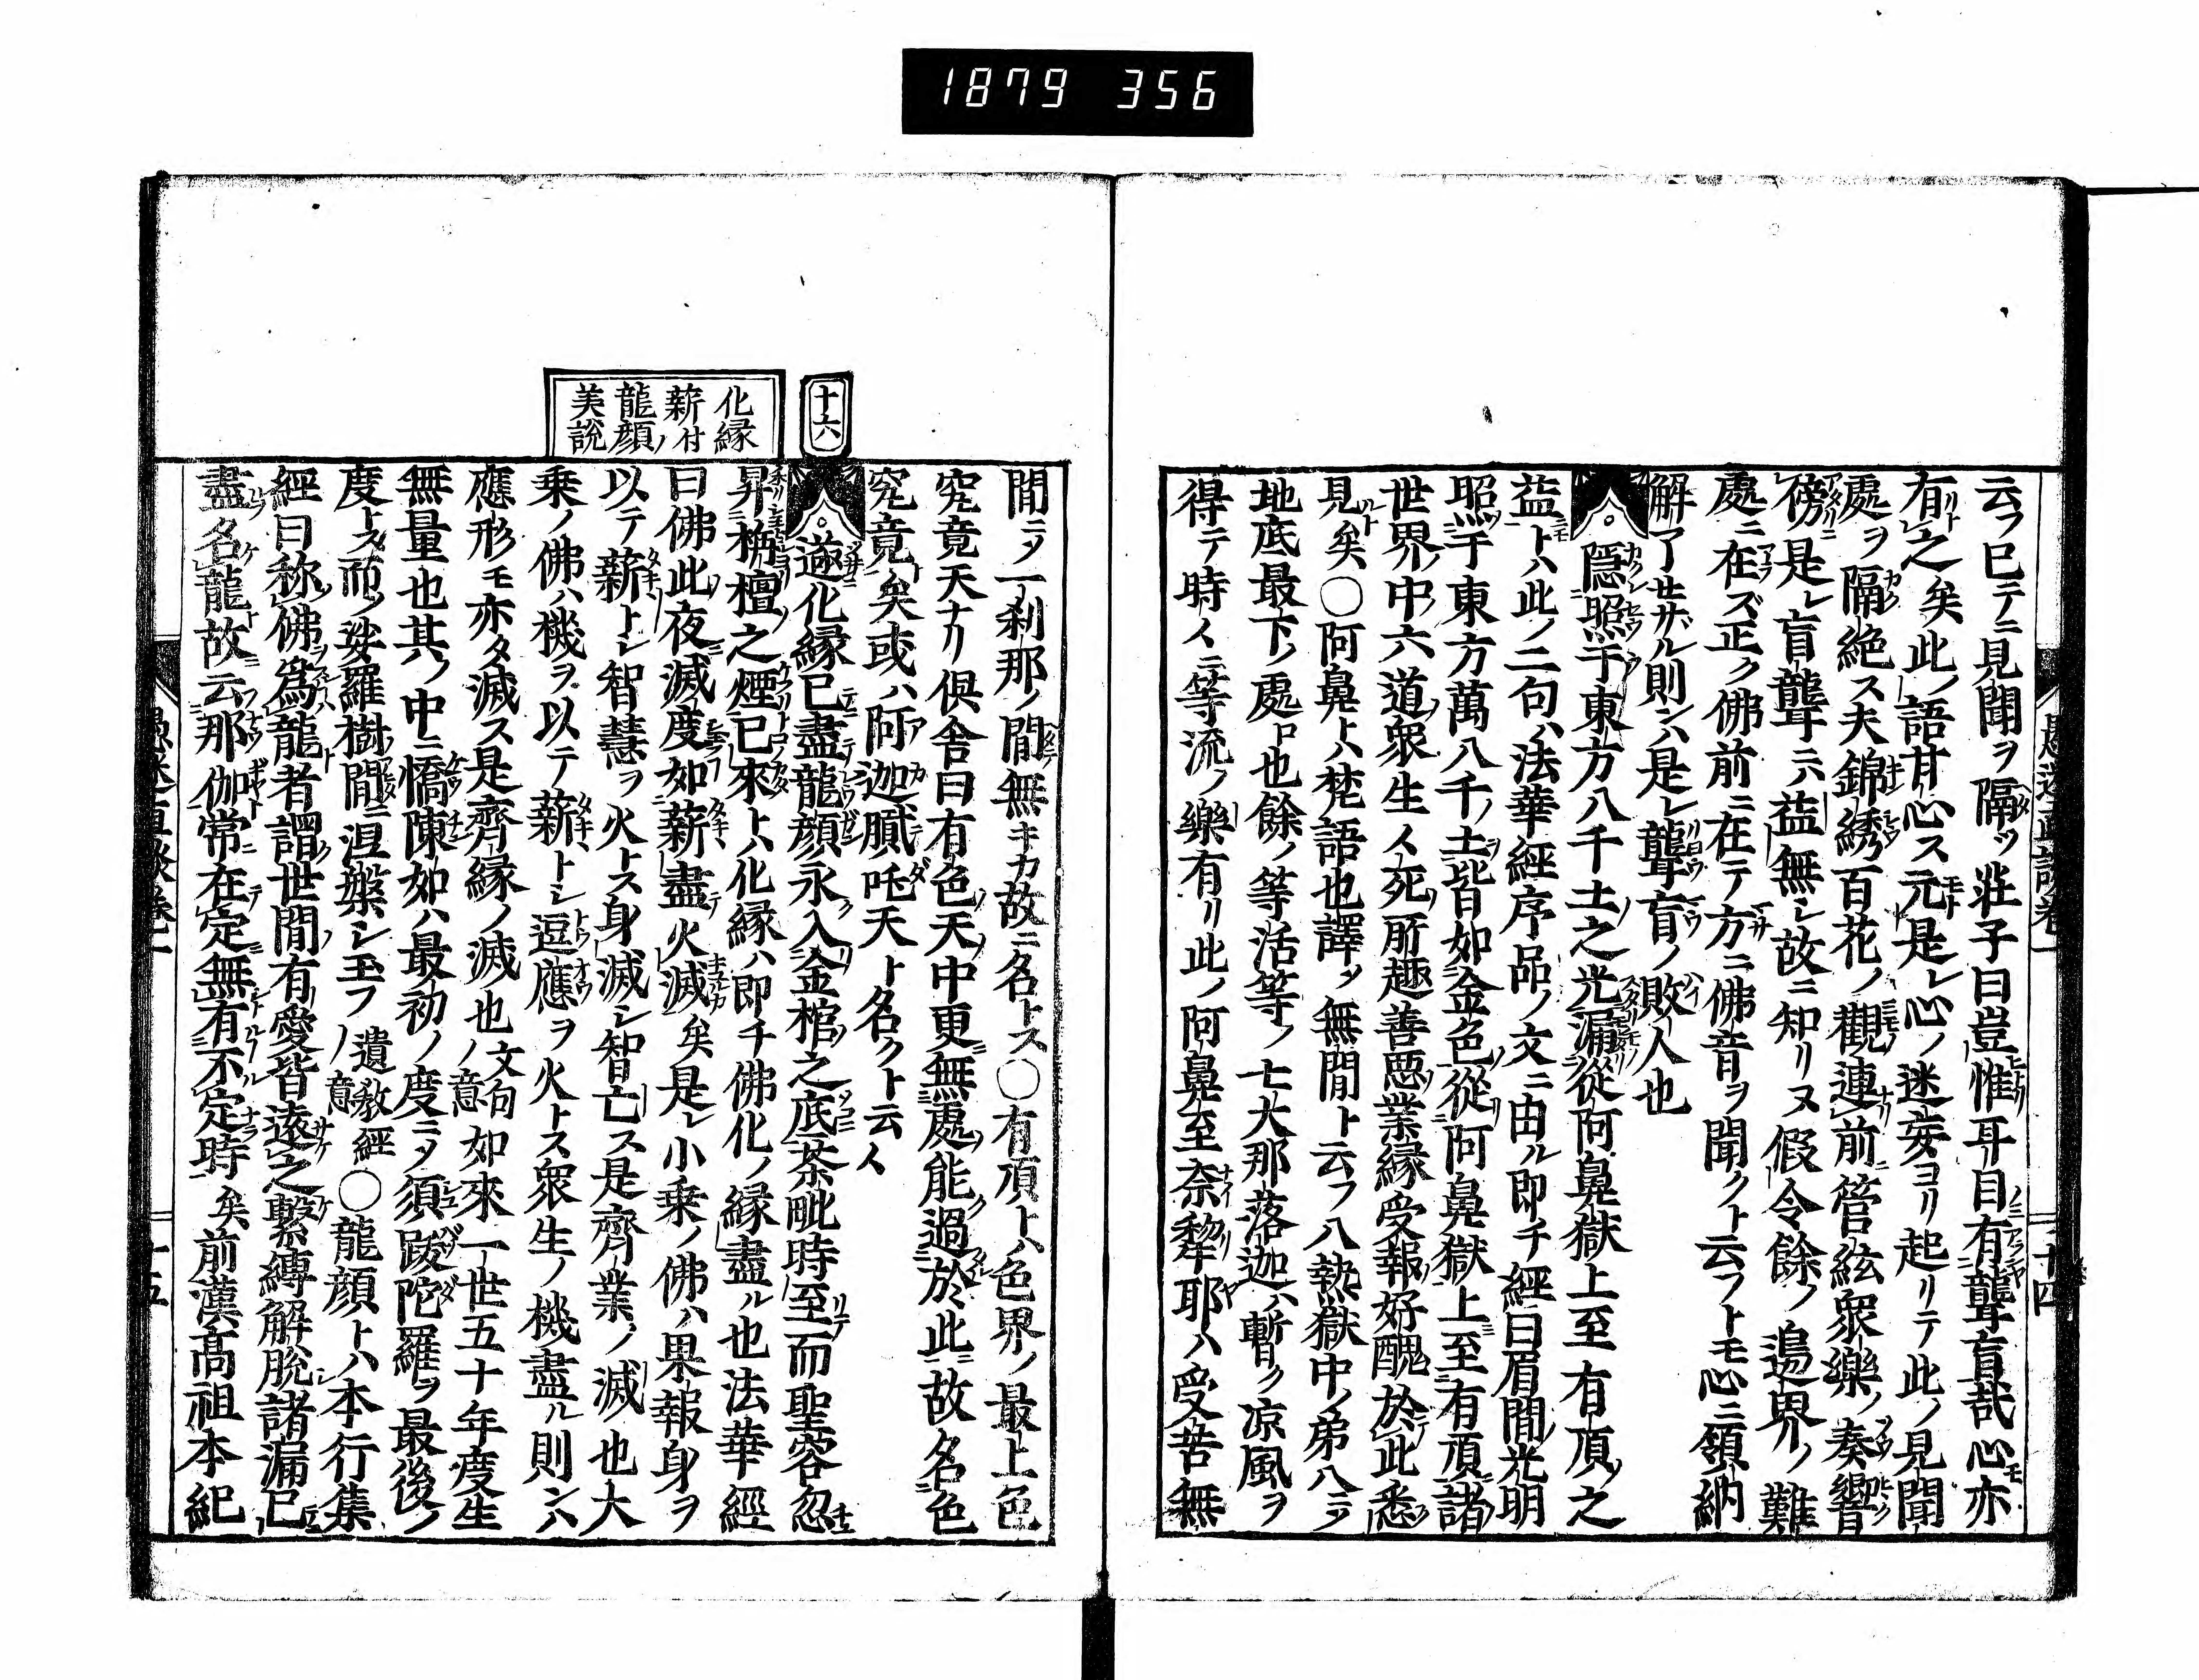 1879 356
云フ已テニ見聞ヲ隔ツ莊子曰豈惟耳目有聾盲哉心亦
有之矣此ノ語甘心ス元是レ心ノ迷妄ヨリ起リテ此ノ見聞
處ヲ隔絶ス夫錦綉百花ノ觀連前管絃衆樂ノ奏響
傍是レ盲聾ニハ益無シ故ニ知リヌ假令餘ノ邊界ノ難
處ニ在ズ正ク佛前ニ在テ方ニ佛音ヲ聞クト云フトモ心ニ領納
解了せザル則ンハ是レ聾盲ノ敗人也
隱照于東方八千土之光漏從阿鼻獄上至有頂之
益トハ此ノ二句ハ法華經序品ノ文ニ由ル即チ經曰眉間光明
照于東方萬八千ノ土皆如金色從阿鼻獄上至有頂諸
世界中六道衆生人死所趣善惡業縁受報好醜於此悉
見矣〇阿鼻トハ梵語也譯メ無間ト云フ八熱獄中ノ弟八ニメ
地底最下ノ處ロ也餘ノ等活等ノ七大那落迦ハ暫ク凉風ヲ
得テ時人ニ等流ノ樂有リ此ノ阿鼻至奈犂耶ハ受苦無
愚迷直談卷一
十四
間ニメ一刹那ノ間無キカ故ニ名トス〇有頂トハ色界ノ最上色
究竟天ナリ倶舎曰有色天中更無處能過於此故名色
究竟矣或ハ阿迦膩吒天ト名クト云人
十六
化縁薪付龍顔ノ美説
遂化縁已盡龍顔永入金棺之底荼毗時至而聖容忽
昇栴檀之煙已來トハ化縁ハ即チ佛化ノ縁盡ル也法華經
曰佛此夜滅度如薪盡火滅矣是レ小乗ノ佛ハ果報身ヲ
以テ薪トシ智慧ヲ火トス身滅シ智亡ス是齊業ノ滅也大
乗ノ佛ハ機ヲ以テ薪トシ逗應ヲ火トス衆生ノ機盡ル則ンハ
應形モ亦タ滅ス是齊縁ノ滅也文句ノ意如來一世五十年度生
無量也其ノ中ニ憍陳如ハ最初ノ度ニメ須跋陀羅ヲ最後ノ
度トス而ノ娑羅樹間ニ涅槃シ玉フ遺教經ノ意〇龍顔トハ本行集
經曰称佛爲龍者謂世間有愛皆遠之繫縛解脱諸漏已
盡名龍故云那伽常在定無有不定時矣前漢高祖本紀
十五